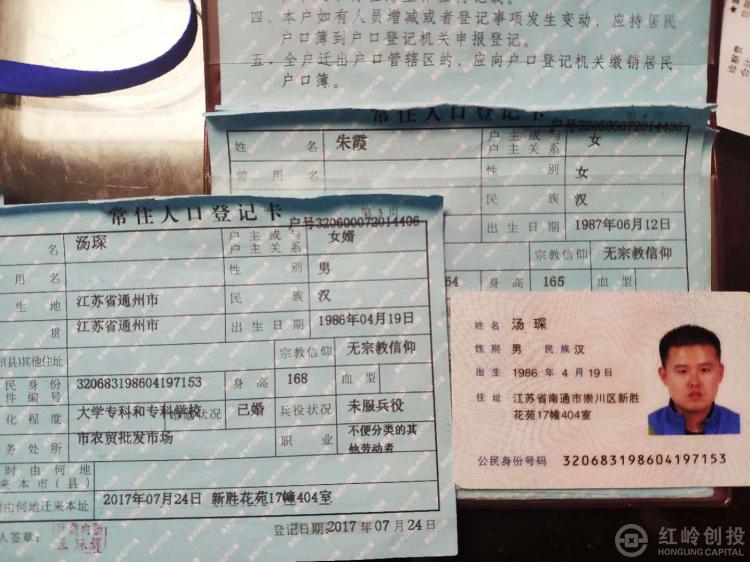 四、本户如有人员增减或者登记事项发生变动，应持居民
户口簿到户口登记机关申报登记。
五、全户迁出户口管辖区的，应向户口登记机关缴销居民
户口簿。
常住人口登记卡
户号320600072014406
姓名 朱霞 户主或与户主关系 女
曾用名 性别 女
民族 汉
出生日期 1987年06月12日
宗教信仰 无宗教信仰
64 身高 165 血型
常住人口登记卡
户号320600072014406
名 汤琛 户主或与户主关系 女婿
用名 性别 男
生地 江苏省通州市 民族 汉
贯 江苏省通州市 出生日期 1986年04月19日
(县)其他住址 宗教信仰 无宗教信仰
民身份件编号 320683198604197153 身高 168 血型
化程度 大学专科和专科学校 婚姻状况 已婚 兵役状况 未服兵役
务处所 市农贸批发市场 职业 不便分类的其他劳动者
时由何地来本市(县)
时由何地迁来本址 2017年07月24日 新胜花苑17幢404室
人签章： 登记日期:2017年07月24日
姓名 汤琛
性别 男 民族 汉
出生 1986 年 4 月 19 日
住址 江苏省南通市崇川区新胜
花苑17幢404室
公民身份号码 320683198604197153
红岭创投
HONGLING CAPITAL